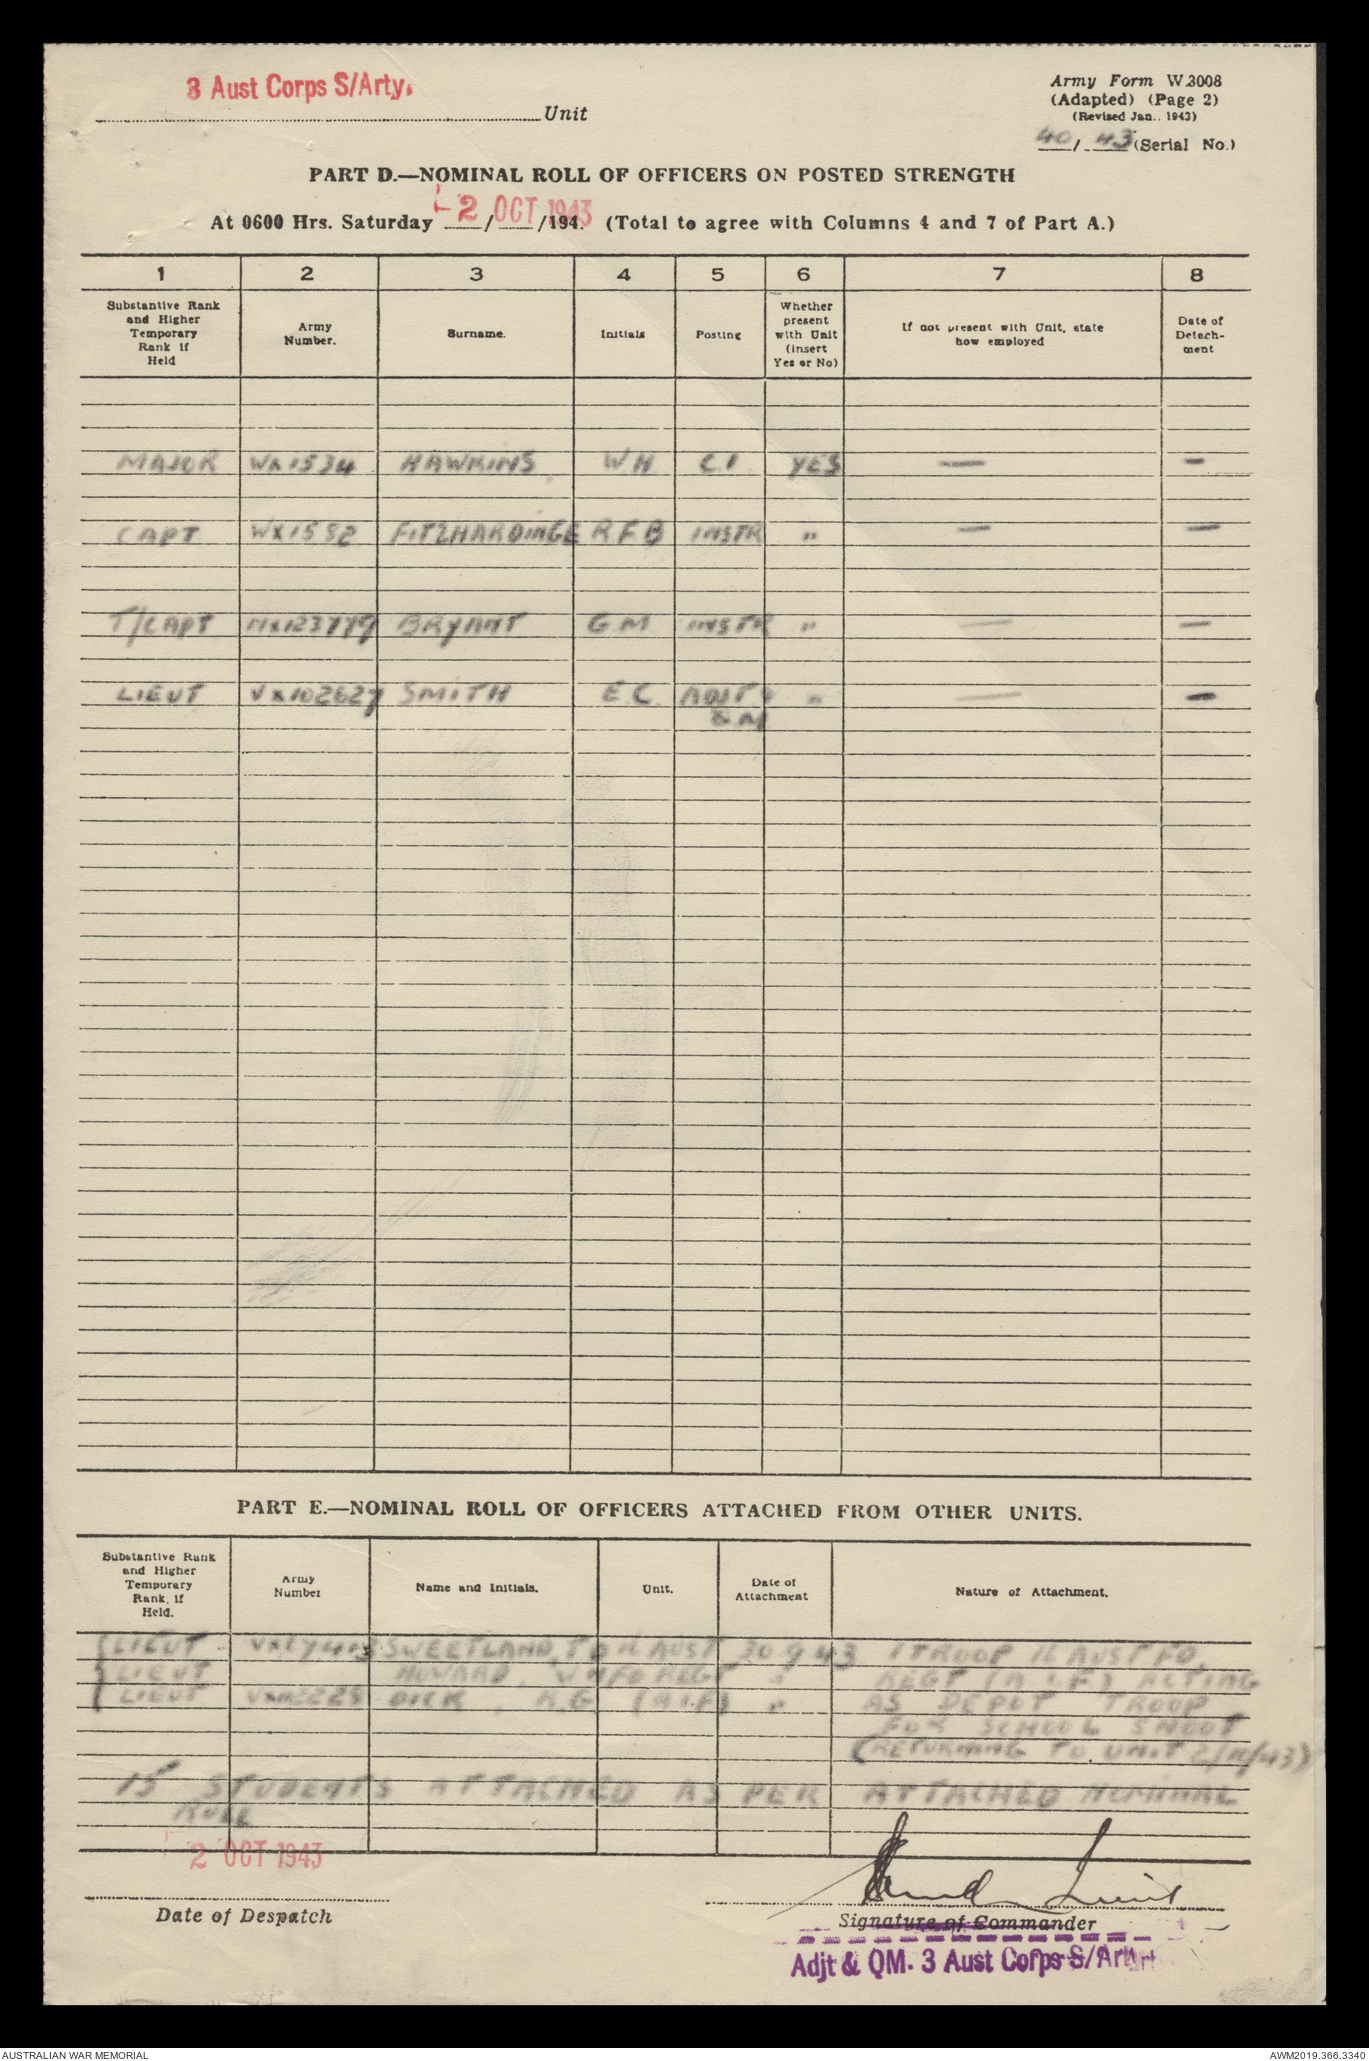 3 Aust Corps S/Arty.
Unit
Army Form W.3008
(Adapted) (Page 2)
(Revised Jan., 1943)
40/43 (Serial No.)
PART D.—NOMINAL ROLL OF OFFICERS ON POSTED STRENGTH
At 0600 Hrs. Saturday -2/OCT/1943 194. (Total to agree with Columns 4 and 7 of Part A.)
1 2 3 4 5 6 7 8
Substantive Rank and Higher Temporary Rank if Held
Army Number.
Surname.
Initials
Posting
Whether present with Unit (insert Yes or No)
If not present with Unit, state how employed
Date of Detachment
MAJOR WX1534 HAWKINS WH C.I. YES — —
CAPT WX1582 FITZHARDINGE R F B INSTR " — —
T/CAPT BRYANT G M INSTR " — —
LIEUT VX102627 SMITH E C ADJT & " — —
Q M
PART E.—NOMINAL ROLL OF OFFICERS ATTACHED FROM OTHER UNITS.
Substantive Rank and Higher Temporary Rank, if Held.
Army Number
Name and Initials.
Unit.
Date of Attachment
Nature of Attachment.
LIEUT SWEETLAND, AUST 30 9 43 1 TROOP AUST FD.
LIEUT HOWARD, FD REGT " REGT (A.I.F) ACTING
LIEUT DICK, K.G. (A.I.F) " AS DEPOT TROOP
FOR SCHOOL SHOOT
(RETURNING TO UNIT
15 STUDENTS ATTACHED AS PER ATTACHED NOMINAL
ROLL
2 OCT 1943
Date of Despatch
Signature of Commander
Adjt & QM. 3 Aust Corps S/Arty
AUSTRALIAN WAR MEMORIAL
AWM2019.366.3340